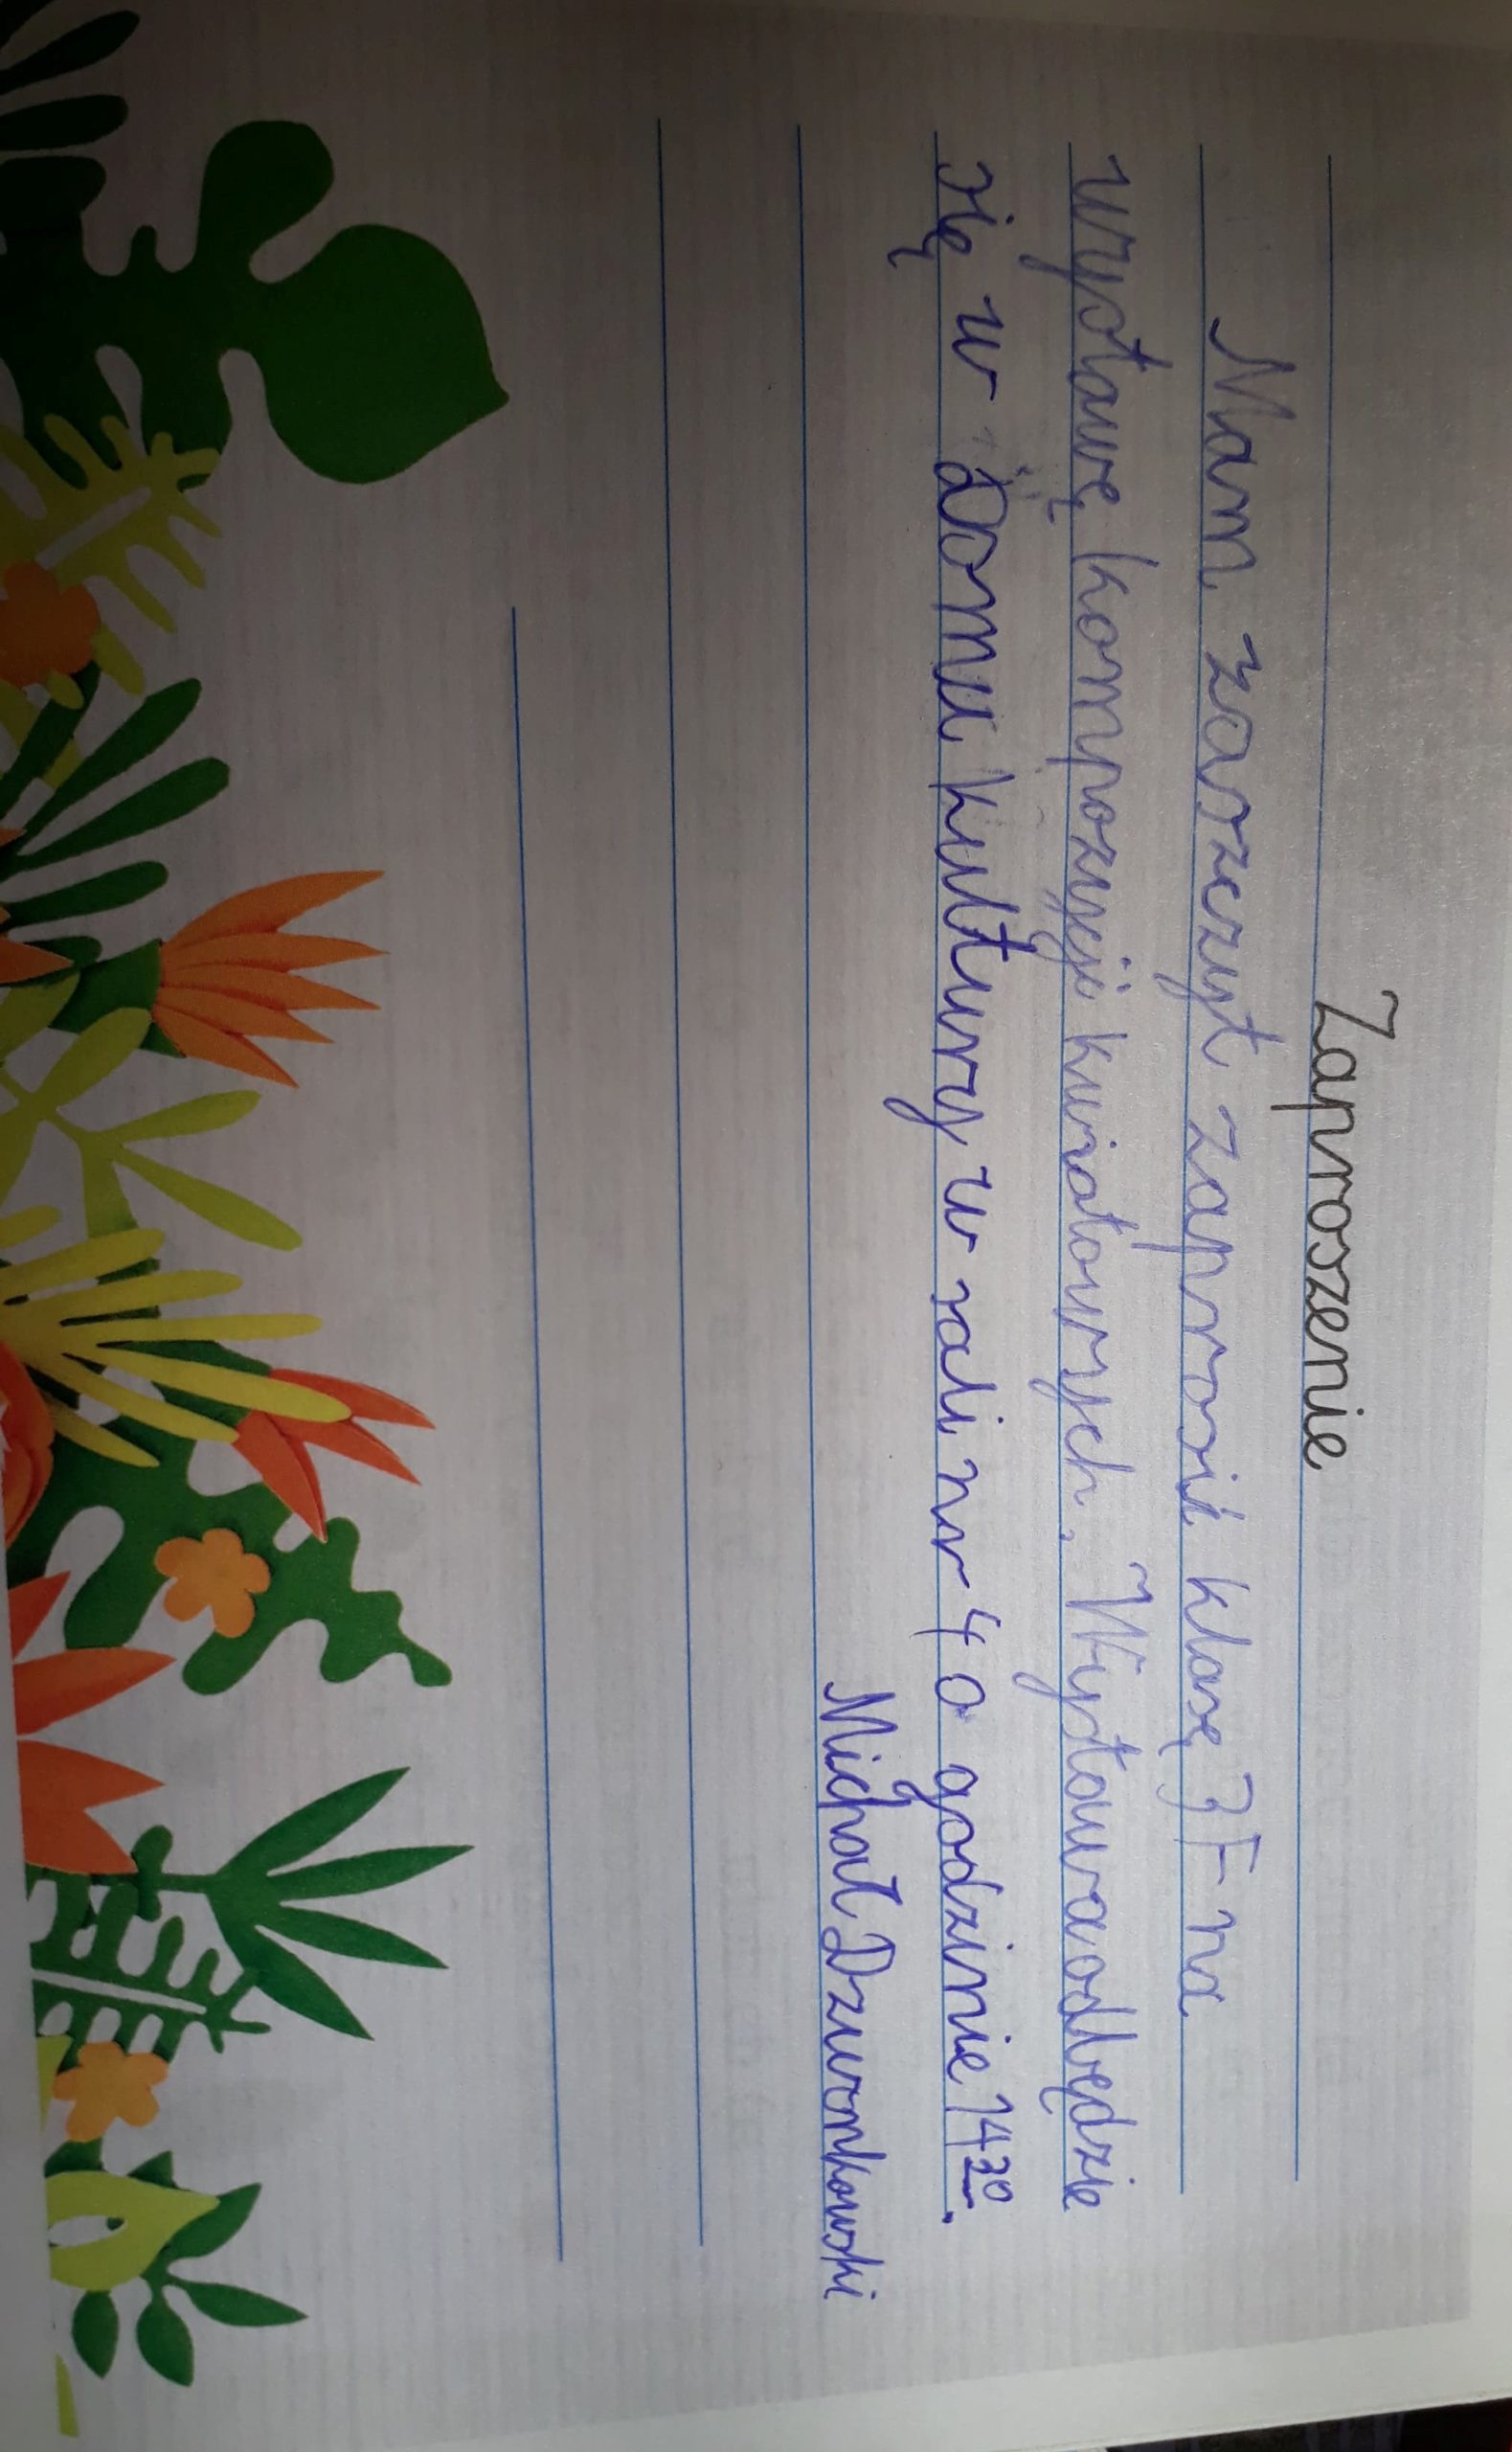 Zaproszenie
Mam zaszczyt zaprosić klasę 3F na
wystawę kompozycji kwiatowych. Wystawa odbędzie
się w Domu kultury w sali nr 4 o godzinie 14 30.
Michał Dzwonkowski